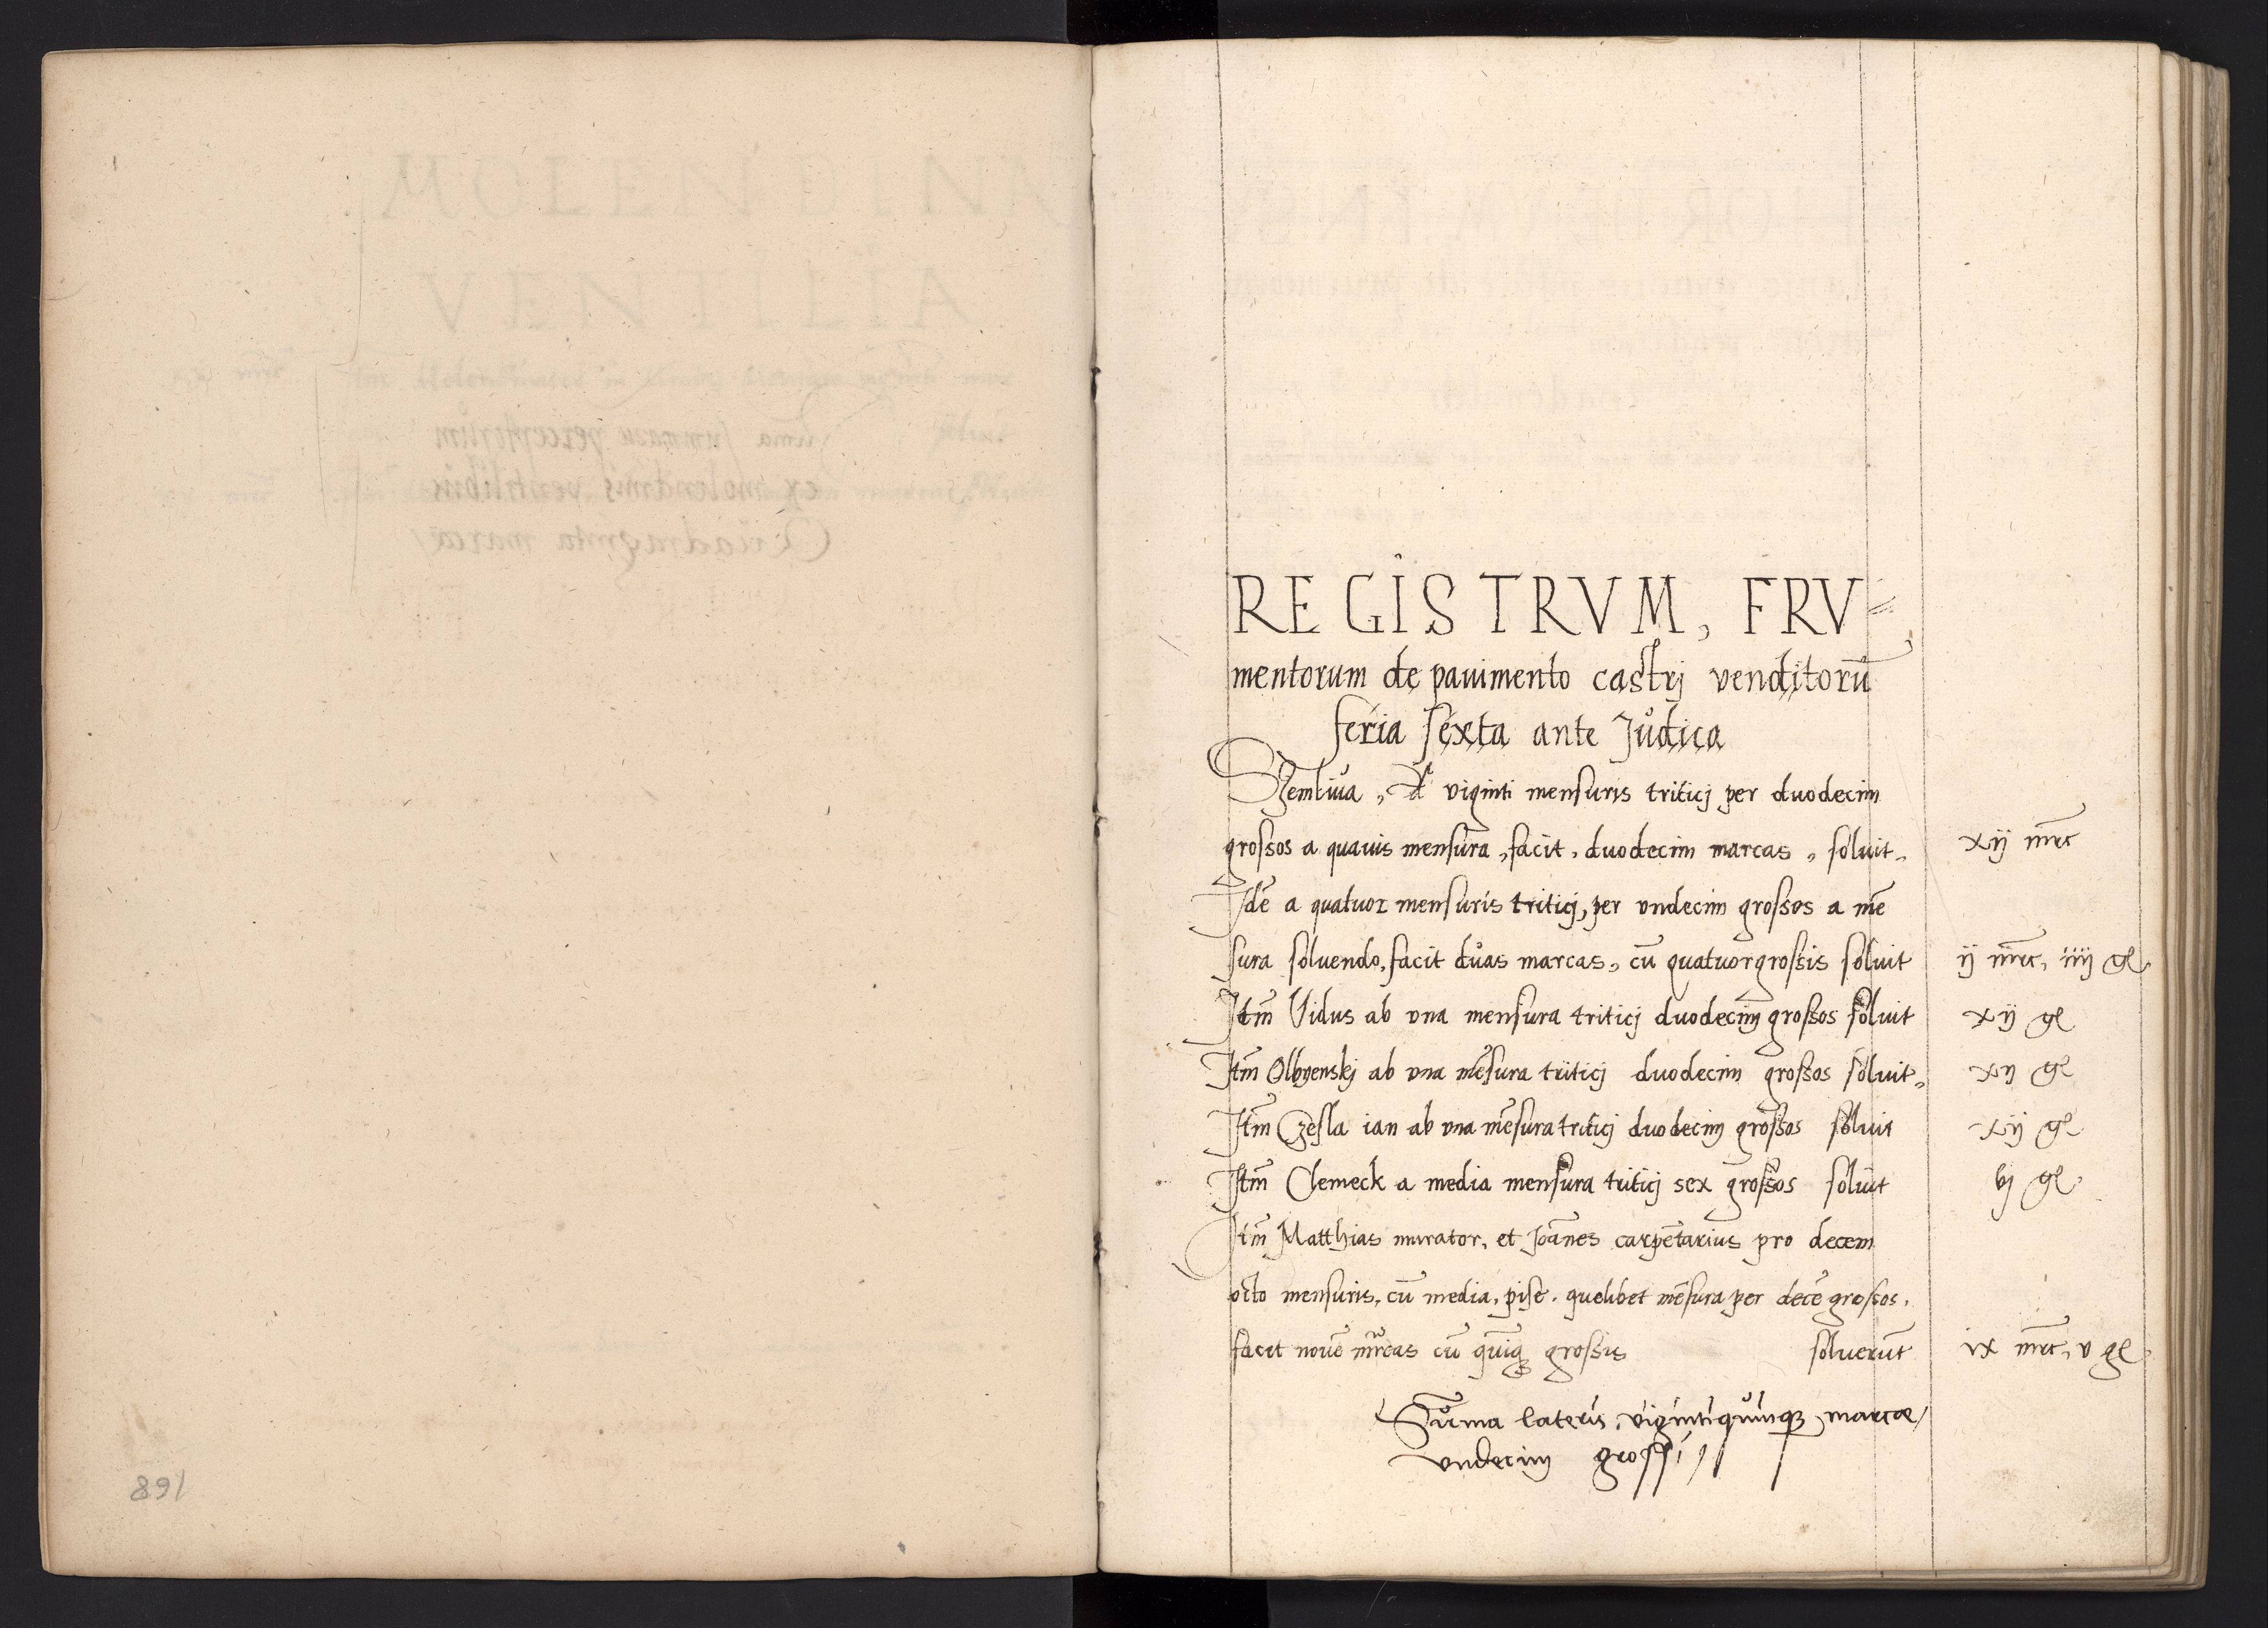 168
REGISTRVM, FRV=
mentorum de pauimento castrj venditorū
feria sexta ante Judica
Szemliua, A viginti mensuris triticj per duodecim
grossos a quauis mensura, facit, duodecim marcas, soluit, xij mrc
Idē a quatuor mensuris triticj, per vndecim grossos a mē
sura soluendo, facit duas marcas, cū quatuor grossis soluit ij mrc, iiij gͤ
Itm̄ Vidus ab vna mensura triticj duodecim grossos soluit xij gͤ
Itm̄ Olbyenskj ab vna mēsura triticj duodecim grossos soluit, xij gͤ
Itm̄ Czesla ian ab vna mēsura triticj duodecim grossos soluit xij gͤ
Itm̄ Clemeck a media mensura triticj sex grossos soluit vj gͤ
Itm̄ Matthias murator, et Joānes carpētarius pro decem
octo mensuris, cū media, pise. quelibet mēsura per decē grossos,
facit nouē mrcas cū quīqȝ grossis soluerūt ix mrc, v gͤ
Sūma lateris, vigintiquinqȝ marcæ/
vndecim grossi//